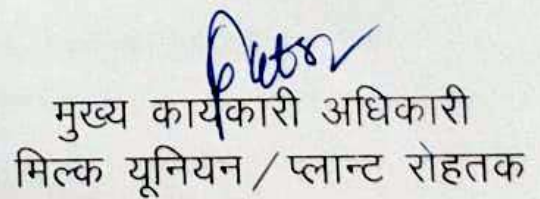 मुख्य कार्यकारी अधिकारी
मिल्क यूनियन / प्लान्ट रोहतक